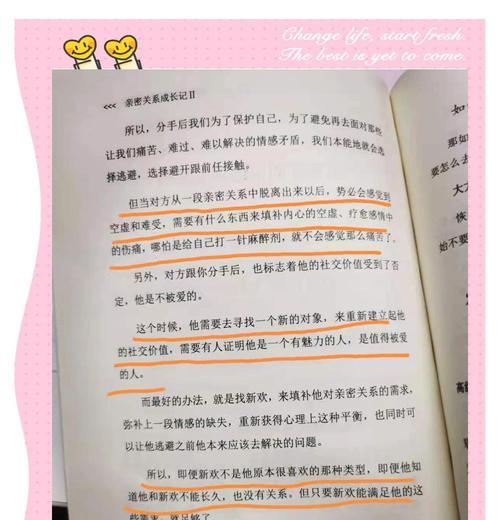 Change life, start fresh.
The best is yet to come.
<<< 亲密关系成长记Ⅱ
所以，分手后我们为了保护自己，为了避免再去面对那些
让我们痛苦、难过、难以解决的情感矛盾，我们本能地就会选
择逃避，选择避开跟前任接触。
但当对方从一段亲密关系中脱离出来以后，势必会感觉到
空虚和难受，需要有什么东西来填补内心的空虚、疗愈感情中
的伤痛，哪怕是给自己打一针麻醉剂，就不会感觉那么痛苦了。
另外，对方跟你分手后，也标志着他的社交价值受到了否
定，他是不被爱的。
这个时候，他需要去寻找一个新的对象，来重新建立起他
的社交价值，需要有人证明他是一个有魅力的人，是值得被爱
的人。
而最好的办法，就是找新欢，来填补他对亲密关系的需求，
弥补上一段情感的缺失，重新获得心理上这种平衡，也同时可
以让他逃避之前他本来应该去解决的问题。
所以，即便新欢不是他原本很喜欢的那种类型，即便他知
道他和新欢不能长久，也没有关系。但只要新欢能满足他的这
些需求，就足够了
如
那如
要怎么去
大方
恢
始不要